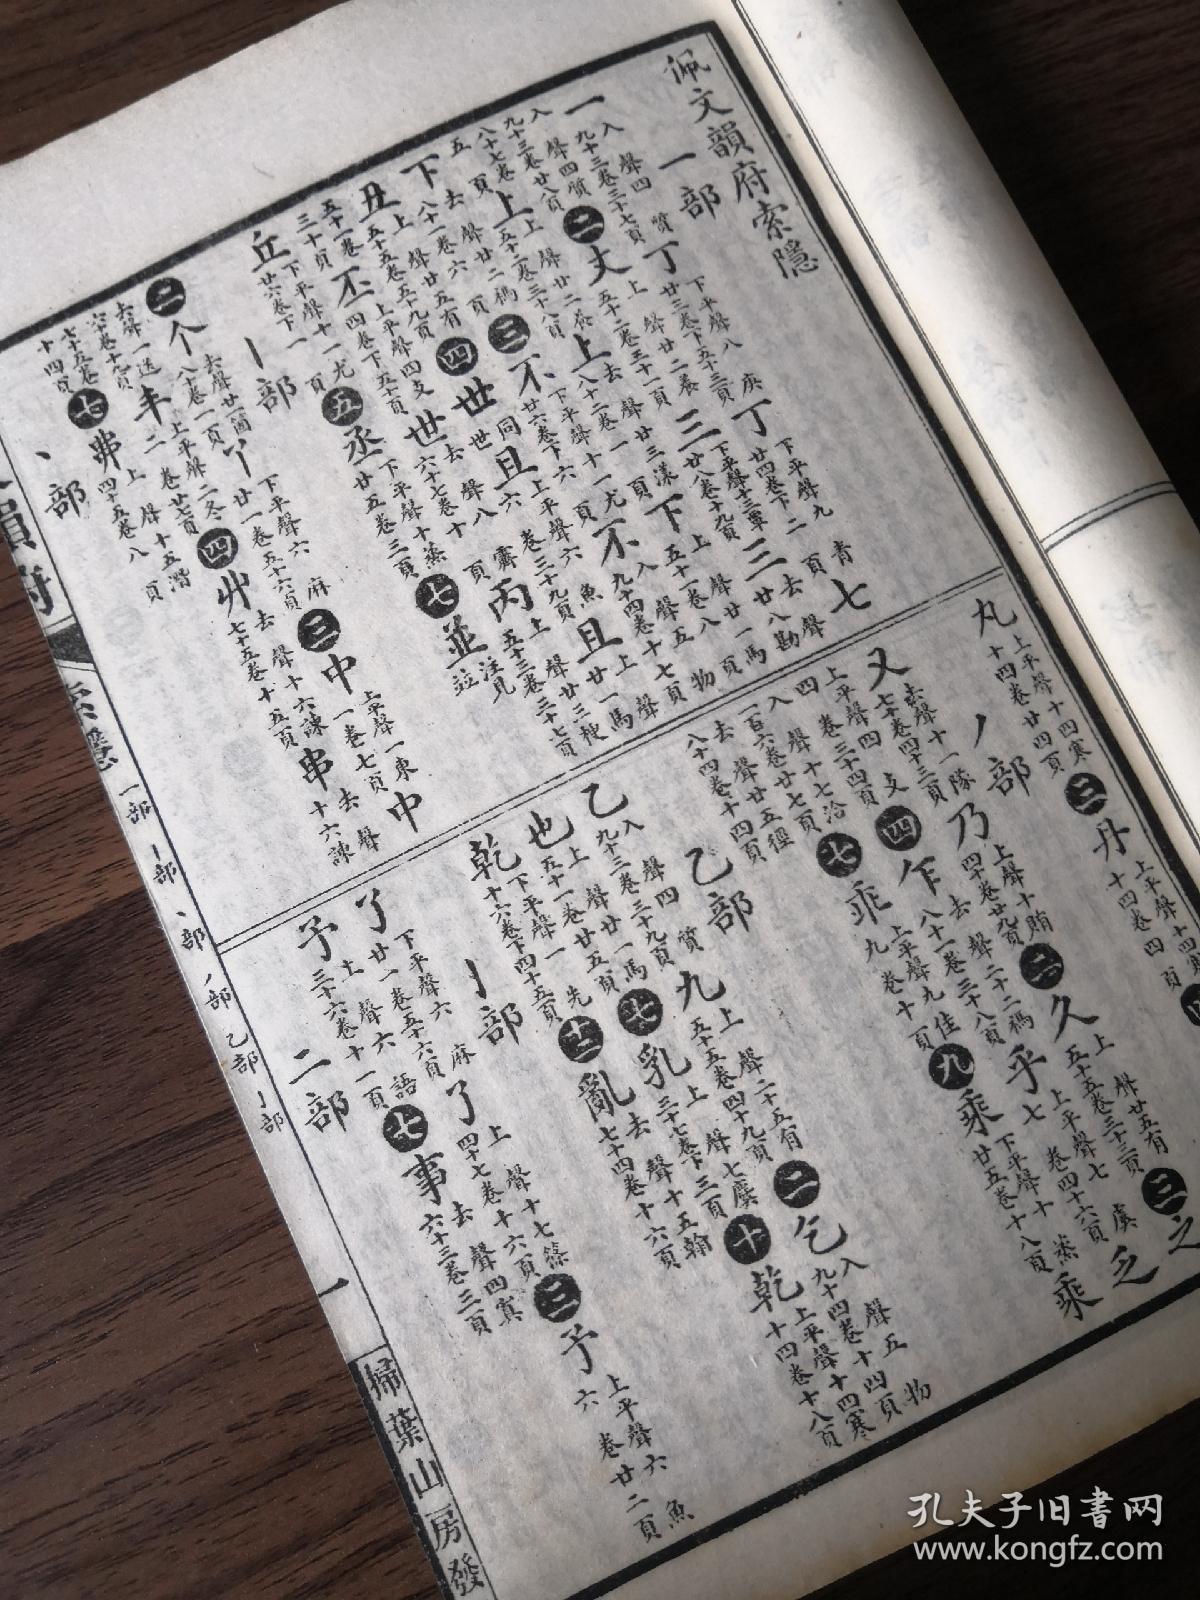 佩文韻府索隱
一部
丁 下平聲八庚 廿三卷下五十三頁 丁 下平聲九青 廿四卷下二頁 七
入聲四質 九十三卷三十七頁 ㊁ 丈 上聲廿二養 五十二卷三十一頁 三 下平聲十三覃 廿八卷十九頁 三 去聲廿八勘
上 去聲廿三漾 八十二卷一頁 下 上聲廿一馬 五十一卷八頁
上 上聲廿二養 五十二卷三十八頁 ㊂ 不 下平聲十一尤 廿六卷下六頁 不 入聲五物 九十四卷十七頁
下 去聲廿二禡 八十一卷六頁 ㊃ 世 同世 且 上平聲六魚 六卷三十九頁 且 上聲廿一馬
丑 上聲廿五有 五十五卷五十九頁 世 去聲八霽 六十七卷十頁 丙 上聲廿三梗 五十三卷三十七頁
丕 上平聲四支 四卷下五十頁 ㊄ 丞 下平聲十蒸 廿五卷三頁 ㊆ 並 注見竝
丘 下平聲十一尤 廿六卷下一頁
丨部
㊁ 个 去聲廿一箇 八十卷一頁 丫 下平聲六麻 廿一卷五十六頁 ㊂ 中 上平聲一東 一卷七頁 中
去聲一送 六十卷十九頁 丰 上平聲二冬 二卷廿七頁 ㊃ 丱 去聲十六諫 七十五卷十五頁 串 去聲十六諫
七十五卷十四頁 ㊆ 丳 上聲十五潸 四十五卷八頁
丶部
丸 上平聲十四寒 十四卷廿四頁 ㊂ 丹 上平聲十四寒 十四卷四頁
丿部
乃 上聲十賄 四十卷廿九頁 ㊁ 久 上聲廿五有 五十五卷三十三頁 ㊂ 之
乂 去聲十一隊 七十卷四十三頁 ㊃ 乍 去聲二十二禡 八十一卷三十八頁 乎 上平聲七虞 七卷四十六頁 乏
上平聲四支 四卷三十四頁 乖 上平聲九佳 九卷十頁 ㊈ 乘 下平聲十蒸 廿五卷十八頁 乘
入聲十七洽 一百六卷廿七頁 ㊆
去聲廿五徑 八十四卷十四頁
乙部
乙 入聲四質 九十三卷三十九頁 九 上聲二十五有 五十五卷四十九頁 ㊁ 乞 入聲五物 九十四卷十四頁
也 上聲廿一馬 五十一卷廿五頁 ㊆ 乳 上聲七麌 三十七卷下三頁 ㊉ 乾 上平聲十四寒 十四卷十八頁
乾 下平聲一先 十六卷下四十五頁 亂 去聲十五翰 七十四卷十六頁
亅部
了 下平聲六麻 廿一卷五十六頁 了 上聲十七篠 四十七卷十六頁 ㊂ 予 上平聲六魚 六卷廿二頁
予 上聲六語 三十六卷十一頁 ㊆ 事 去聲四寘 六十三卷三頁
二部
一部 丨部 丶部 丿部 乙部 亅部
一
掃葉山房發
孔夫子旧书网
www.kongfz.com